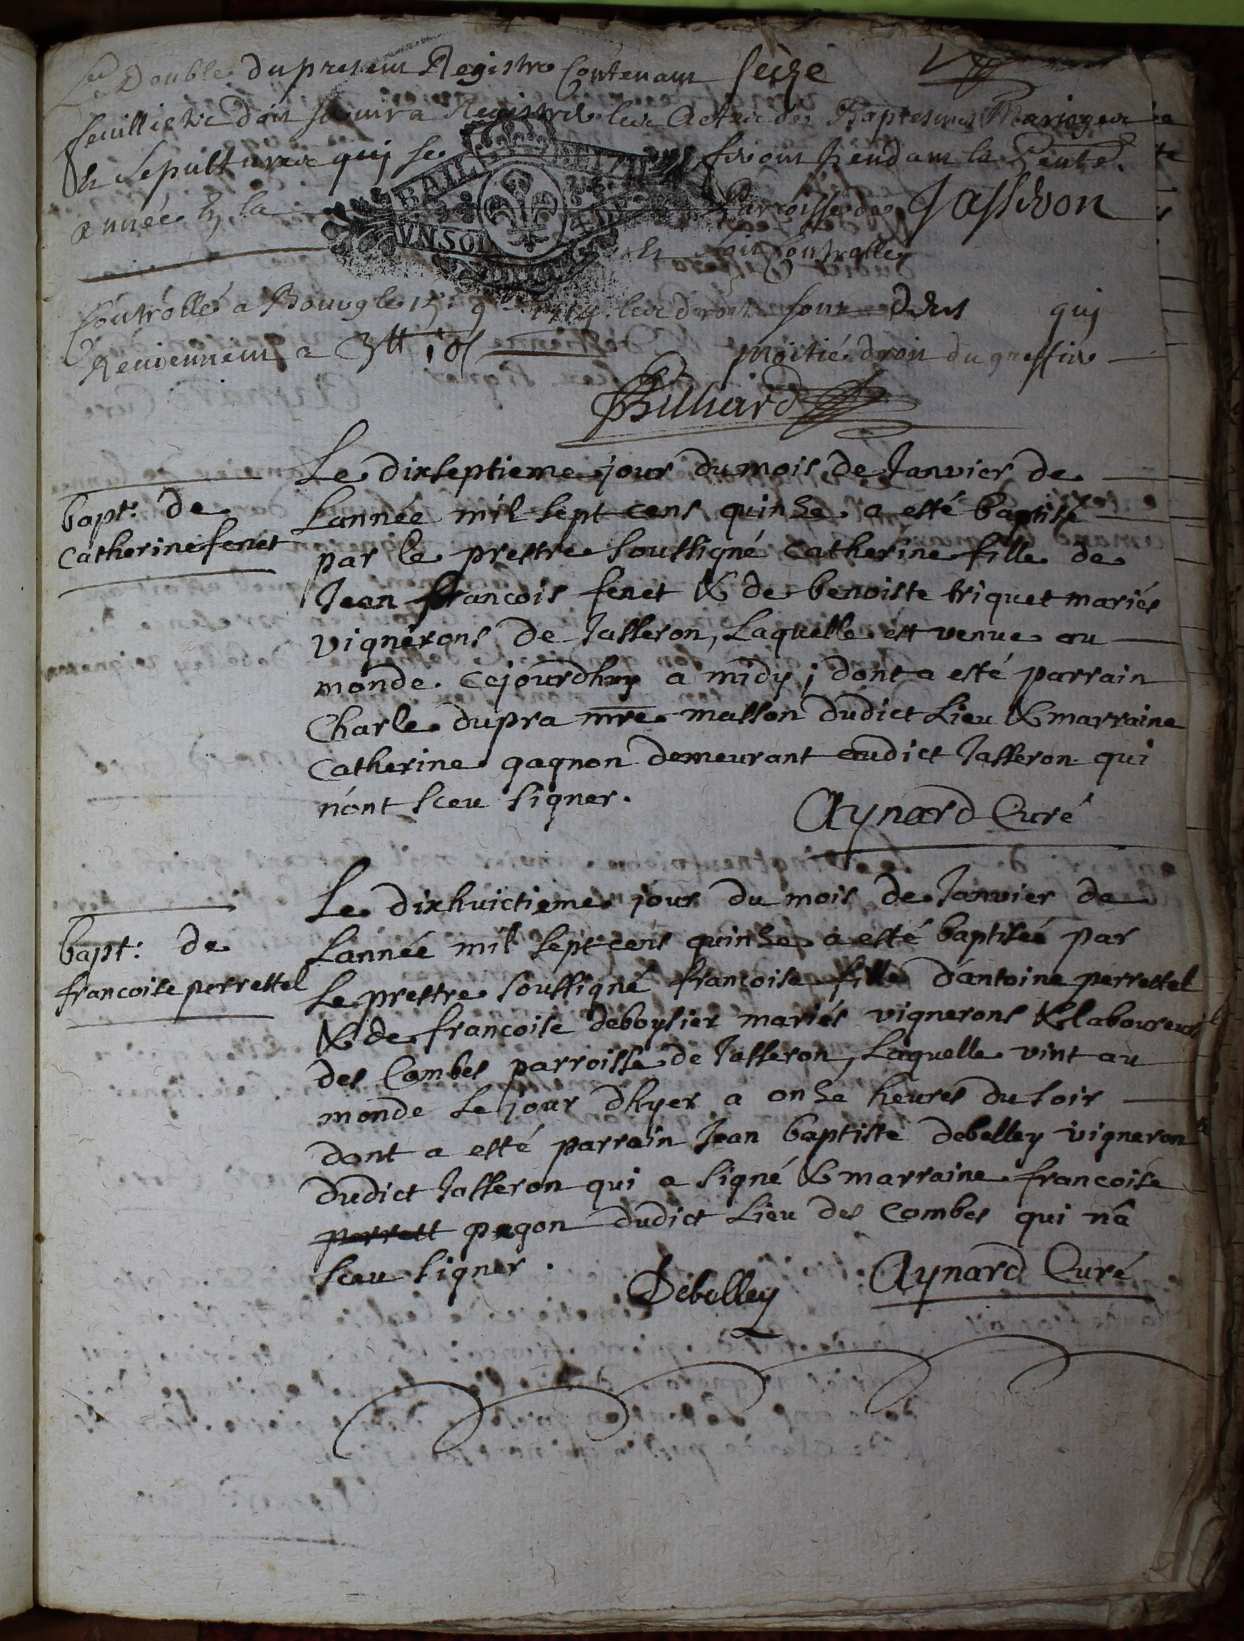 Le Double du present Registre Contenant seize
feuillets doit servir a Registrer les Actes de Baptesmes Mariages
& Sepultures qui se feront Pendant la presente
année En la Parroisse de Jasseron
Et soit Controllé
Controllé a Bourg le les droits sont deus qui
Reviennent a 3tt 10s moitié droit du greffier
Billiard
Le dixseptieme jour du mois de Janvier de
bapt: de
Catherine fenet
Lannée mil sept cens quinze a esté baptisé
par le prestre soussigné Catherine fille de
Jean françois fenet & de benoiste triquet mariés
vignerons de Jasseron, Laquelle est venue au
monde cejourdhuy a midy; dont a esté parrain
Charle dupra mre masson dudict Lieu & marraine
Catherine gagnon demeurant audict Jasseron qui
n'ont sceu signer.
Aynard Curé
Le dixhuictieme jour du mois de Janvier de
bapt: de
francoise perrettel
Lannée mil sept cens quinze a esté baptiseé par
Le prestre soussigné françoise fille d'antoine perrettel
& de françoise deboysier mariés vignerons & laboureurs
des Combes parroisse de Jasseron, Laquelle vint au
monde le jour d'hyer a onze heures du soir
dont a esté parrain Jean baptiste debelley vigneron
dudict Jasseron qui a signé & marraine françoise
perrett pugon dudict Lieu des Combes qui n'a
sceu signer.
Debelley
Aynard Curé